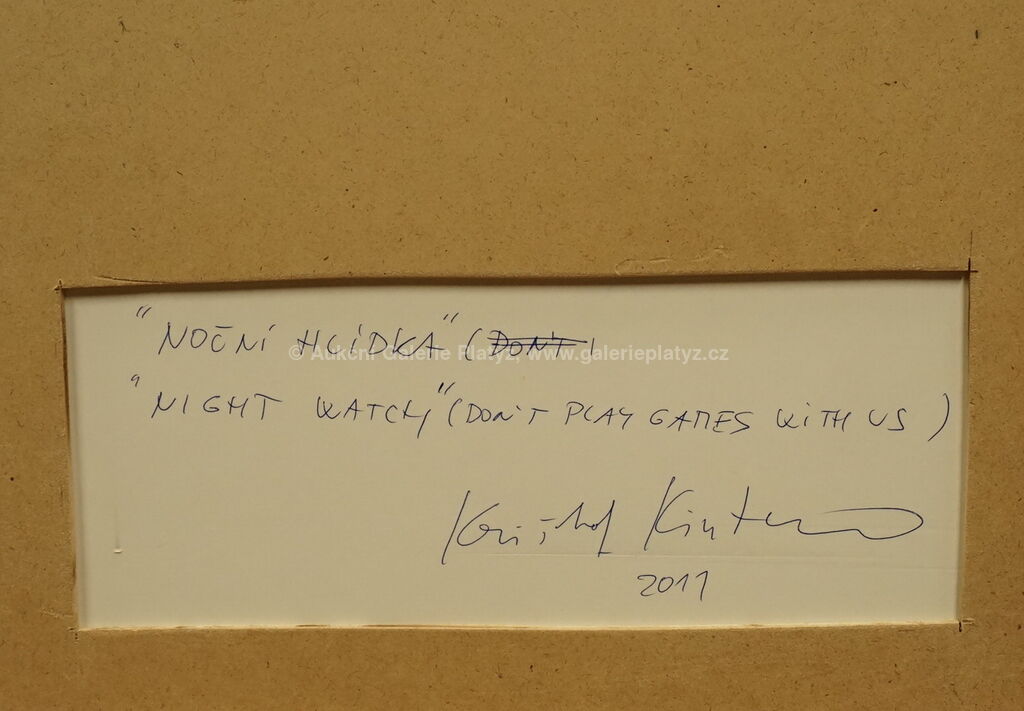 "NOČNÍ HLÍDKA" (DON'T)
© Aukční Galerie Platýz, www.galerieplatyz.cz
"NIGHT WATCH" (DON'T PLAY GAMES WITH US)
Krištof Kintera
2011